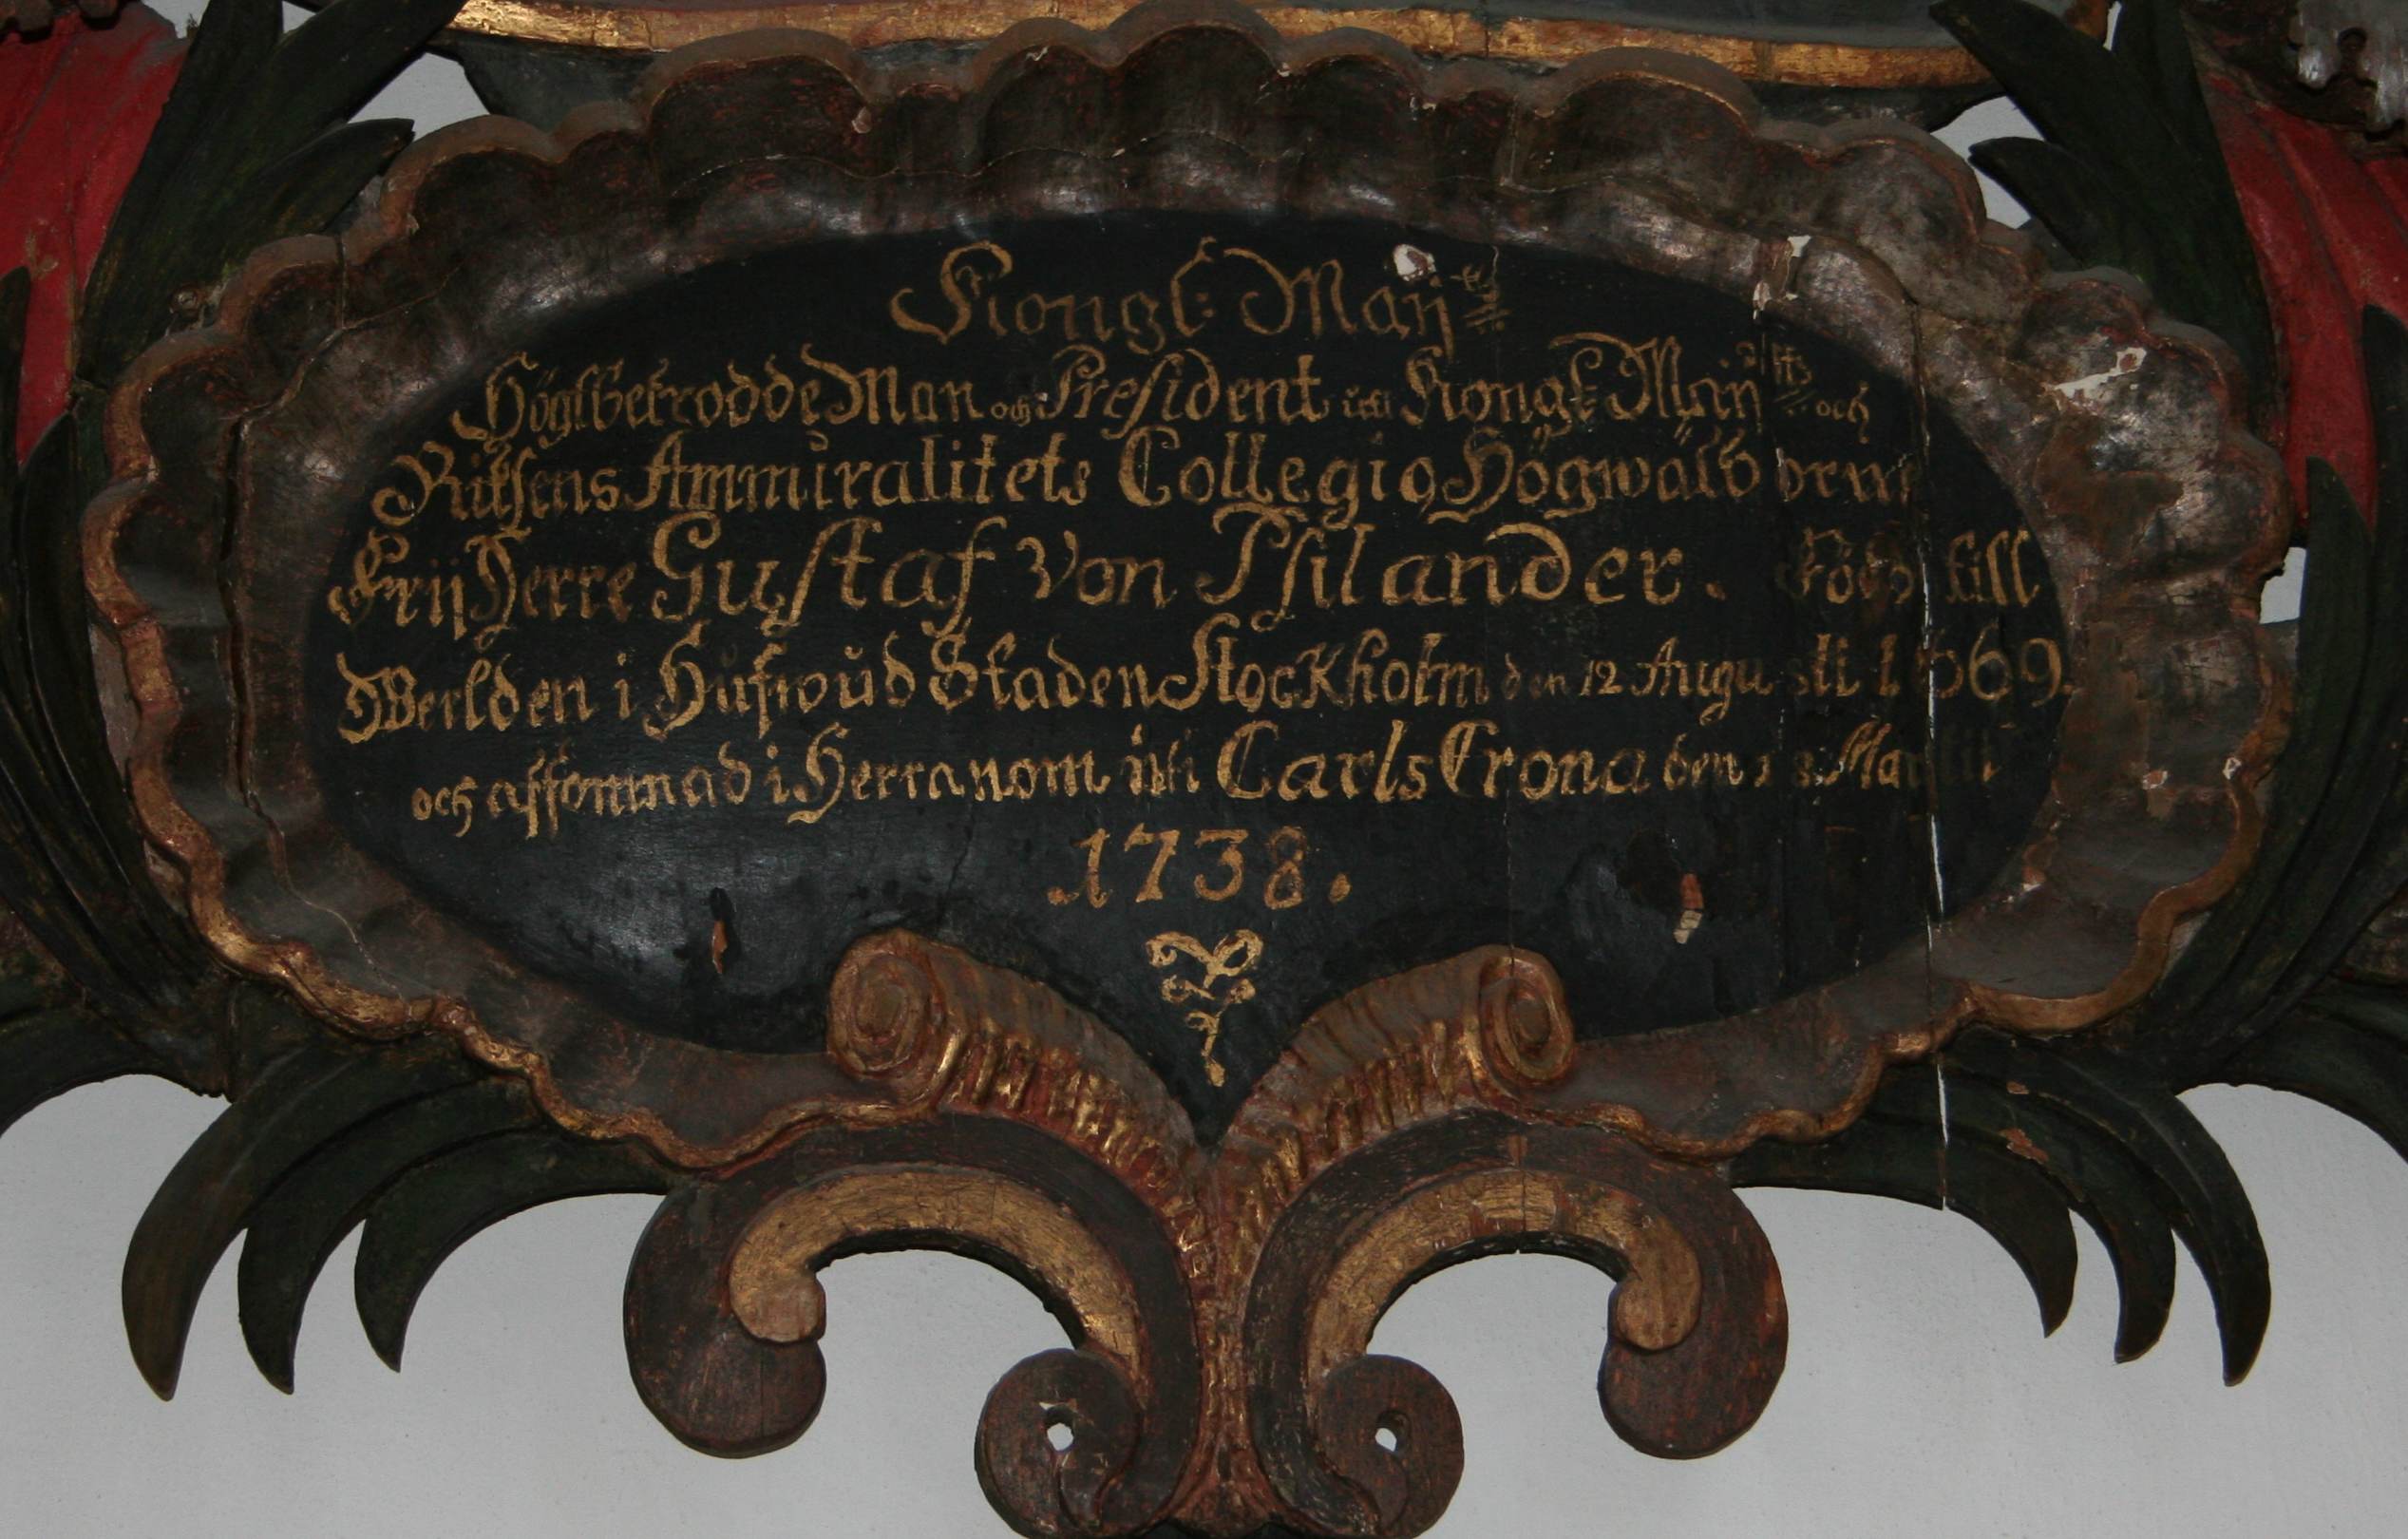 Kongl: Maij:ttz
Höglbetrodde Man och President uti Kongl: Maij:ttz och
Rikſens Ammiralitets Collegio, Högwälb orne
Frij Herre Guſtaf Von Pſilander. Född till
Werlden i Hufwud Staden Stockholm den 12 Augu sti 1669.
och afſomnad i Herranom uti Carls Crona den 18. Martii
1738.